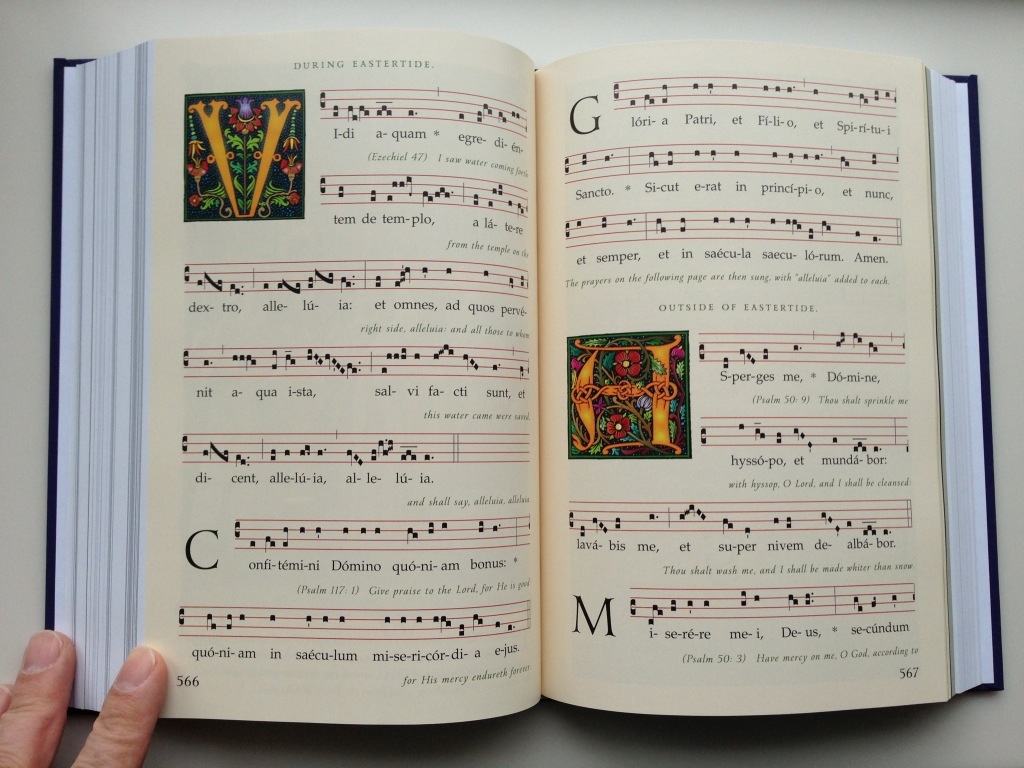 DURING EASTERTIDE.
VI-di a-quam * egre- di- én-
(Ezechiel 47) I saw water coming forth
tem de tem-plo, a lá- te-re
from the temple on the
dex- tro, alle- lú- ia: et omnes, ad quos pervé-
right side, alleluia: and all those to whom
nit a- qua i-sta, sal- vi fa- cti sunt, et
this water came were saved,
di- cent, alle-lú-ia, al- le- lú-ia.
and shall say, alleluia, alleluia
Confi-témi-ni Dómino quó-ni-am bonus: *
(Psalm 117: 1) Give praise to the Lord, for He is good
quó-ni-am in saécu-lum mi-se-ri-cór-di-a e-jus.
for His mercy endureth forever.
566
Glóri- a Patri, et Fí-li-o, et Spi-rí-tu-i
Sancto. * Si-cut e-rat in princí-pi-o, et nunc,
et semper, et in saécu-la saecu- ló-rum. Amen.
The prayers on the following page are then sung, with "alleluia" added to each.
OUTSIDE OF EASTERTIDE.
AS-per-ges me, * Dó-mi-ne,
(Psalm 50: 9) Thou shalt sprinkle me
hyssó-po, et mundá-bor:
with hyssop, O Lord, and I shall be cleansed:
lavá- bis me, et su-per nivem de- albá-bor.
Thou shalt wash me, and I shall be made whiter than snow
Mi- se-ré-re me- i, De-us, * se-cúndum
(Psalm 50: 3) Have mercy on me, O God, according to
567